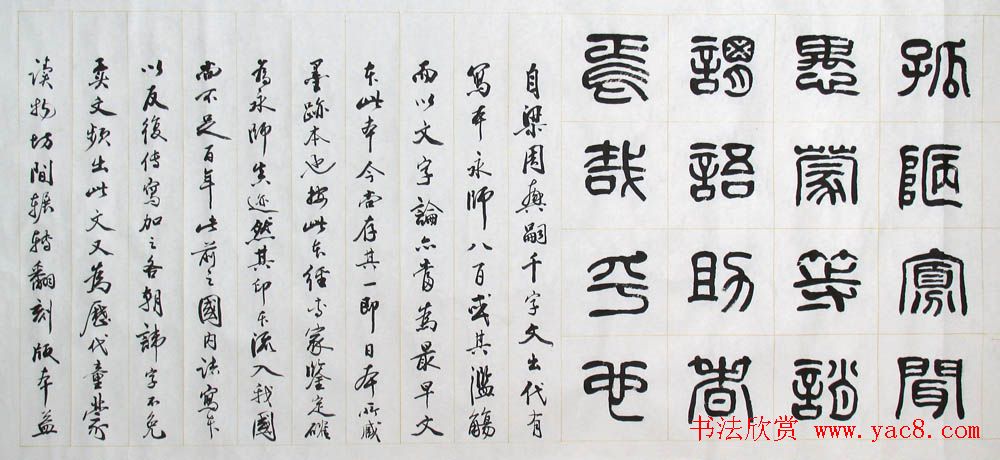 孤陋寡聞
愚蒙等誚
謂語助者
焉哉乎也
自梁周興嗣千字文出代有
寫本永師八百或其濫觴
而以文字論亦當為最早文
本此本今尚存其一即日本所藏
墨跡本也按此本經專家鑒定確
為永師真迹然其印本流入我國
尚不足百年此前之國內諸寫本
以反復傳寫加之各朝諱字不免
異文頻出此文又為歷代童蒙
讀物坊間輾轉翻刻版本益
书法欣赏 www.yac8.com